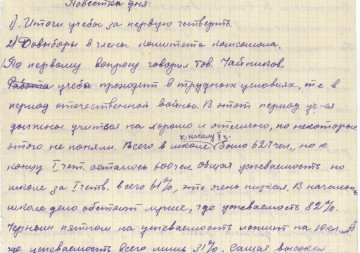 Повестка дня:
1). Итоги учебы за первую четверть.
2) Довыборы в члены комитета комсомола.
1) По первому вопросу говорил тов. Чабников.
Работа учеба проходит в трудных условиях, т.е в
период отечественной войны. В этот период уч-ся
должны учиться на хорошо и отлично, но некоторые
этого не поняли. Всего в школе к началу I ч. было 627 чел, но к
концу I четв. осталось чел Общая успеваемость по
школе за I четв. всего 61%, это очень низкая. В начальной
школе дело обстоит лучше, где успеваемость 82%.
Черным пятном на успеваемость ложит на 10
же успеваемость всего лишь 31%. Самая высокая